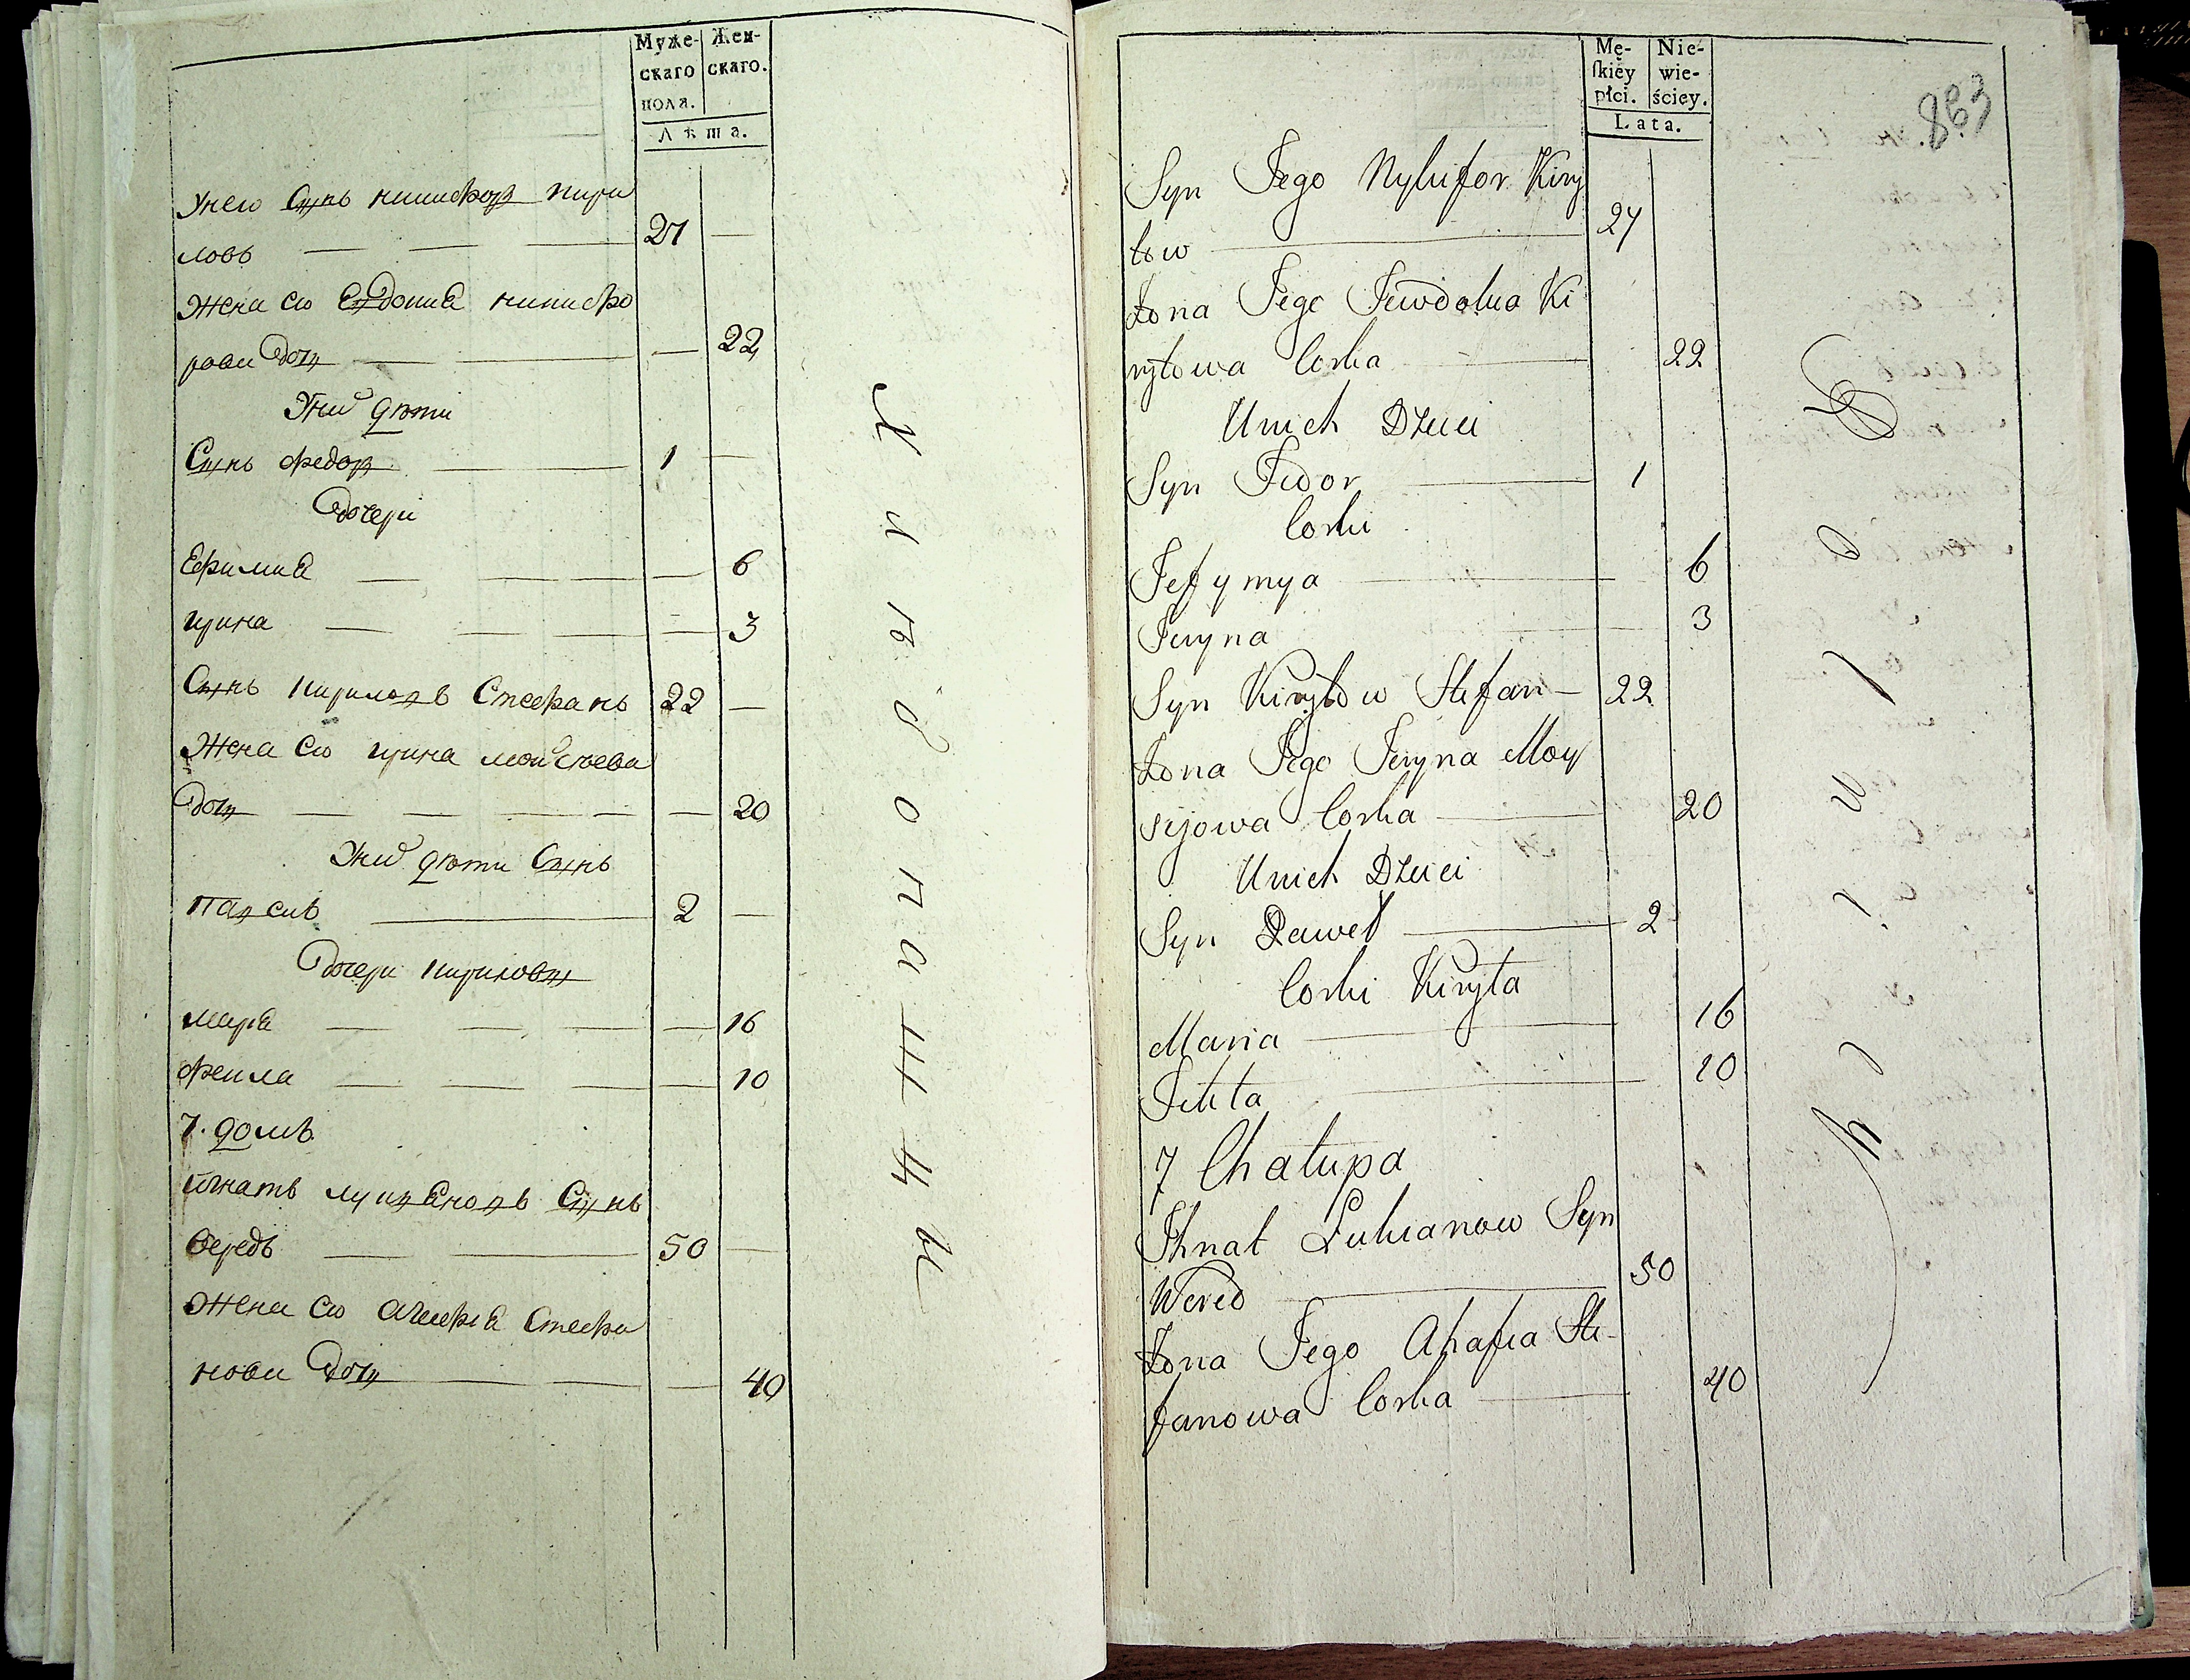 Муже-
скаго
пола.
Жен-
скаго.
Лѣта.
Унего Сынъ никифоръ кири
ловъ 27
Жена его Евдокиа никифо
рова Дочь 22
Уних дѣти
Сынъ федоръ 1
Дочери
Ефимиа 6
ирина 3
Сынъ кириловъ Стефанъ 22
Жена его ирина мойсѣева
Дочь 20
Уних дѣти Сынъ
Павелъ 2
Дочери кириловы
мариа 16
фекла 10
7. домъ
игнатъ лукиановъ Сынъ
вередъ 50
Жена его агафиа Стефа
нова Дочь 40
Хлѣбопашцы
Mę-
ſkiéy
płci.
Nie-
wie-
ściey.
Lata.
863
Syn Jego Nykifor Kiry
łow 27
Żona Jego Jewdokia Ki
ryłowa Corka 22
Unich Dzieci
Syn Fedor 1
Corki
Jefymya 6
Jeryna 3
Syn Kiryłow Stefan 22
Żona Jego Jeryna Moy
syjowa Corka 20
Unich Dzieci
Syn Paweł 2
Corki Kiryła
Maria 16
Fekla 10
7 Chałupa
Ihnat Łukianow Syn
Wered 50
Żona Jego Ahafia Ste-
fanowa Corka 40